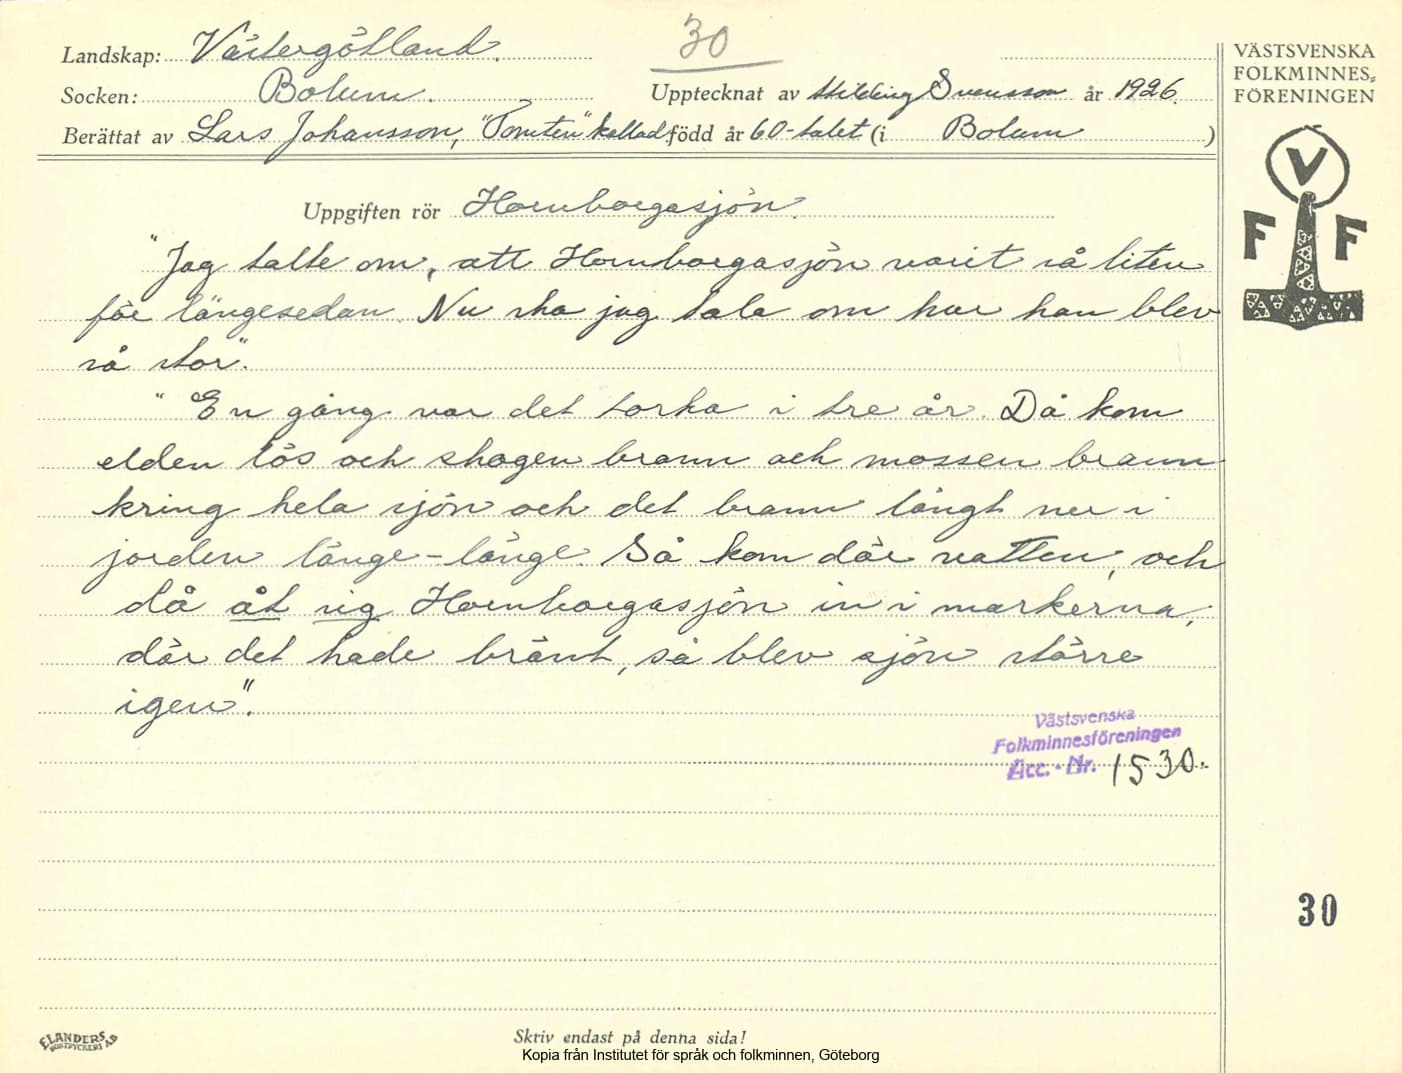 30
Landskap: Västergötland.
Socken: Bolum. Upptecknat av Hilding Svensson år 1926.
Berättat av Lars Johansson, "Tomten" kallad född år 60-talet (i Bolum)
VÄSTSVENSKA
FOLKMINNES-
FÖRENINGEN
V
F F
Uppgiften rör Hornborgasjön.
"Jag talte om, att Hornborgasjön varit så liten
för längesedan. Nu ska jag tala om hur han blev
så stor".
"En gång var det torka i tre år. Då kom
elden lös och skogen brann och mossen brann
kring hela sjön och det brann långt ner i
jorden länge-länge. Så kom där vatten, och
då åt sig Hornborgasjön in i markerna,
där det hade bränt, så blev sjön större
igen".
Västsvenska
Folkminnesföreningen
Acc. - Nr. 1530.
30
ELANDERS
BOKTRYCKERI AB
Skriv endast på denna sida!
Kopia från Institutet för språk och folkminnen, Göteborg